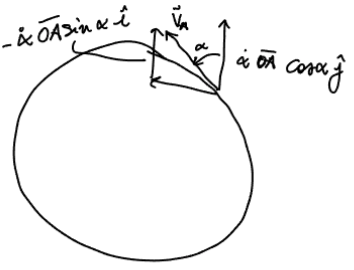 -α̇ O̅A̅ sin α î
v⃗_A
α
α̇ O̅A̅ cosα ĵ